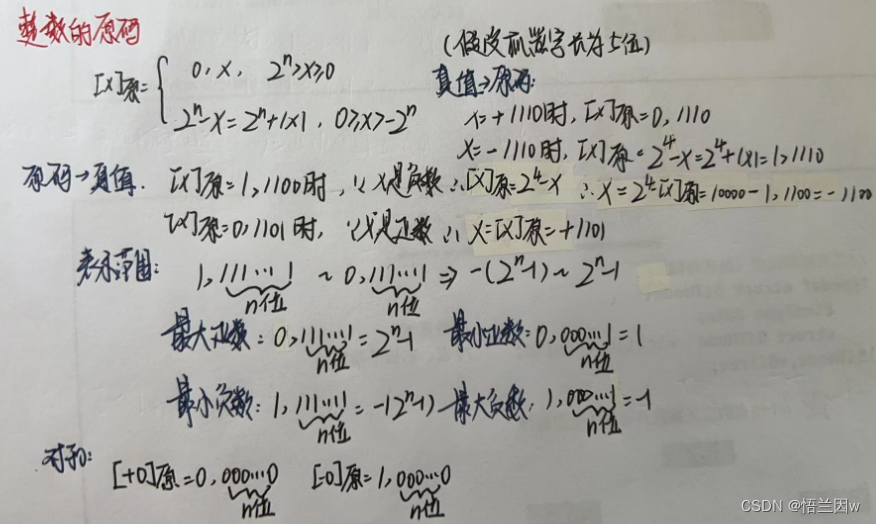 整数的原码
(假设机器字长为5位)
[x]原= { 0,x, 2ⁿ>x≥0
2ⁿ-x=2ⁿ+|x|, 0≥x>-2ⁿ
真值→原码:
x=+1110时, [x]原=0,1110
x=-1110时, [x]原=2⁴-x=2⁴+|x|=1,1110
原码→真值. [x]原=1,1100时, ∵x是负数 ∴[x]原=2⁴-x ∴x=2⁴-[x]原=10000-1,1100=-1100
[x]原=0,1101时, ∵x是正数 ∴x=[x]原=+1101
表示范围: 1,111…1 ~ 0,111…1 ⇒ -(2ⁿ-1)~2ⁿ-1
n位 n位
最大正数: 0,111…1=2ⁿ-1 最小正数: 0,000…1=1
n位 n位
最小负数: 1,111…1=-(2ⁿ-1) 最大负数: 1,000…1=-1
n位 n位
对于0:
[+0]原=0,000…0 [-0]原=1,000…0
n位 n位
typedef struct
struct
CSDN @悟兰因w